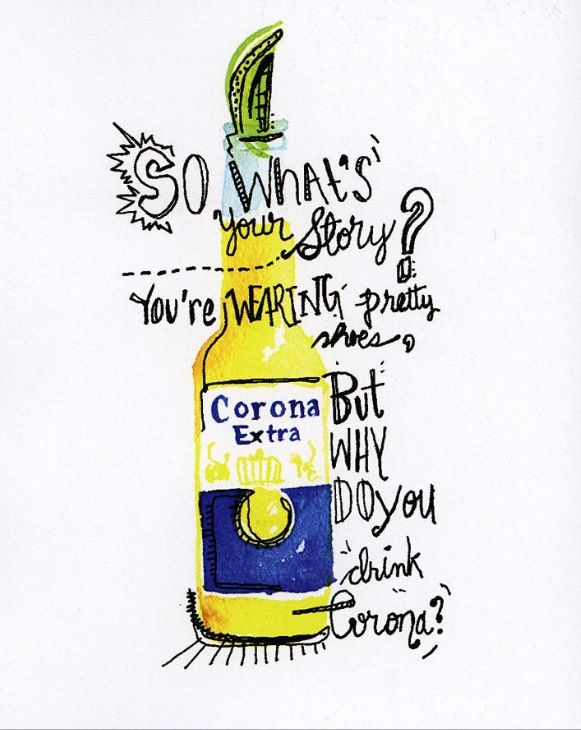 So WHAt's
your Story?
You're WEARING pretty
shoes,
But
WHY
DO you
"drink
Corona?"
Corona
Extra